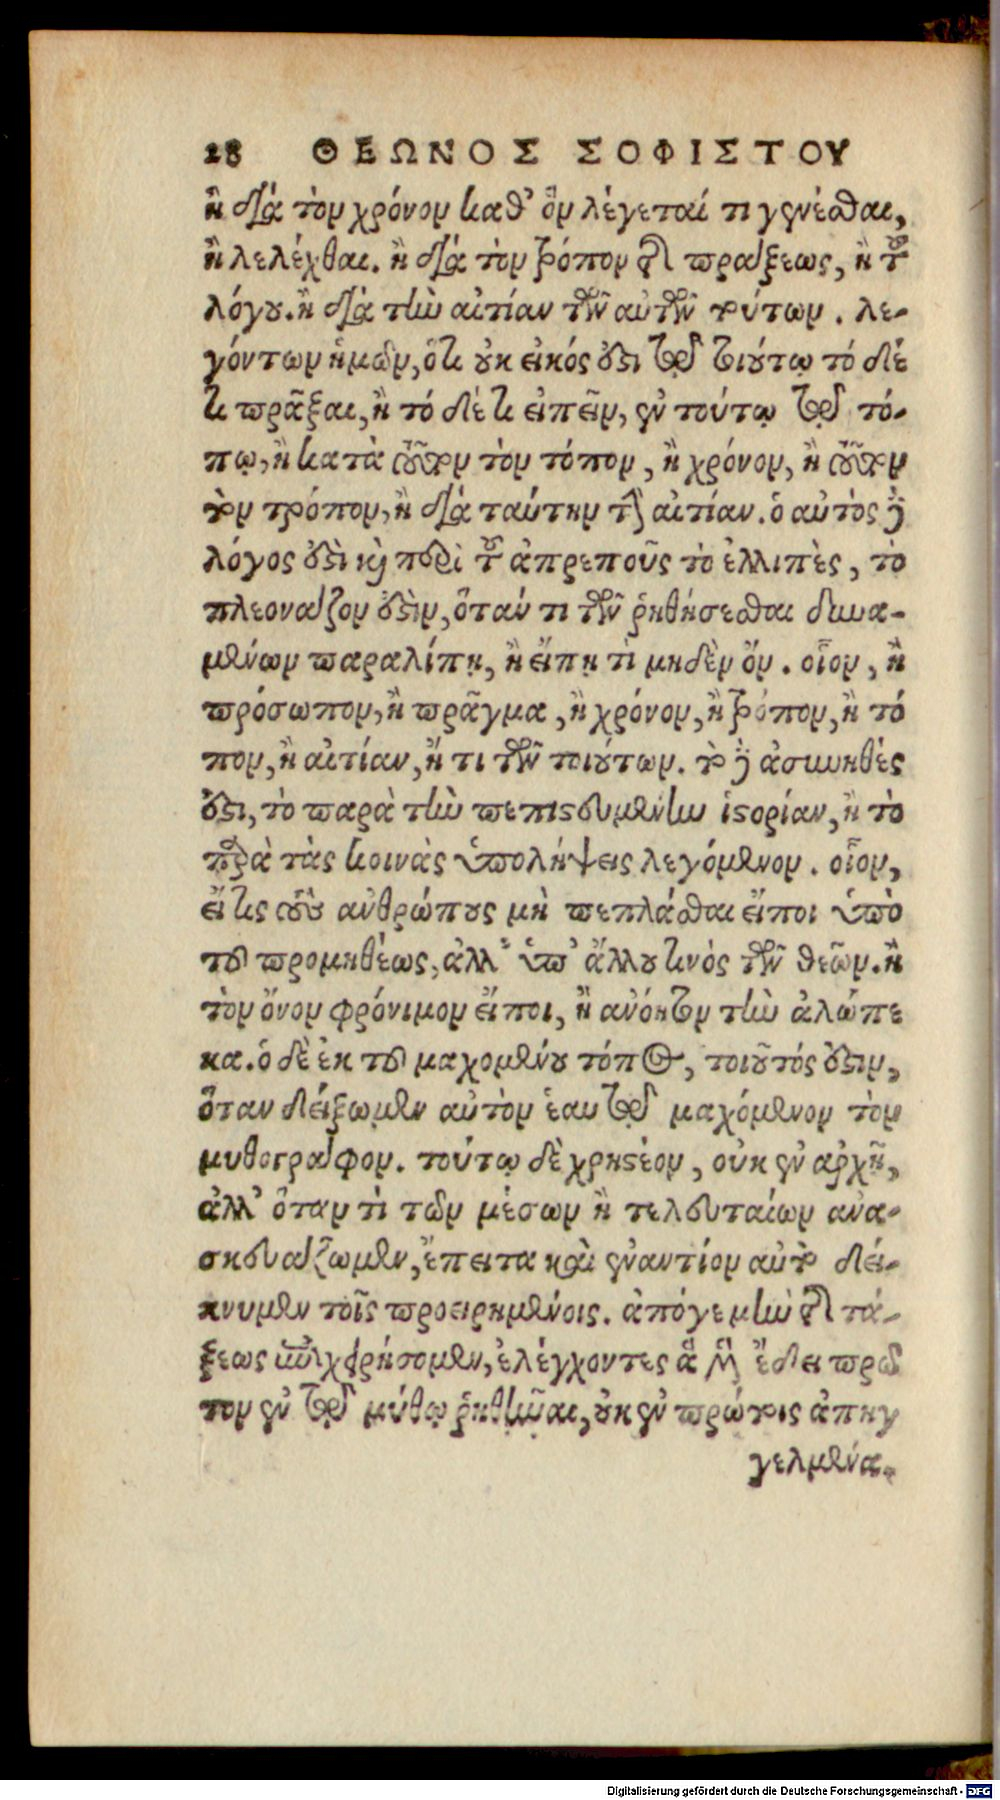 28 ΘΕΩΝΟΣ ΣΟΦΙΣΤΟΥ
ἢ διὰ τὸν χρόνον καθ' ὃν λέγεταί τι γενέσθαι,
ἢ λελέχθαι. ἢ διὰ τὸν τρόπον τῆς πράξεως, ἢ τοῦ
λόγου. ἢ διὰ τὴν αἰτίαν τῶν αὐτῶν τούτων. λε-
γόντων ἡμῶν, ὅτι οὐκ εἰκός ἐστι τῷ τοιούτῳ τό δέ
τι πρᾶξαι, ἢ τό δέ τι εἰπεῖν, ἐν τούτῳ τῷ τό-
πῳ, ἢ κατὰ τοῦτον τὸν τόπον, ἢ χρόνον, ἢ τοῦτον
τὸν τρόπον, ἢ διὰ ταύτην τὴν αἰτίαν. ὁ αὐτὸς δὲ
λόγος ἐστὶ καὶ περὶ τοῦ ἀπρεποῦς τὸ ἐλλιπὲς, τὸ
πλεονάζον ἐστὶν, ὅταν τι τῶν ῥηθήσεσθαι δυνα-
μένων παραλίπῃ, ἢ εἴπῃ τὶ μηδὲν ὄν. οἷον, ἢ
πρόσωπον, ἢ πρᾶγμα, ἢ χρόνον, ἢ τρόπον, ἢ τό
πον, ἢ αἰτίαν, ἤ τι τῶν τοιούτων. τὸ δὲ ἀσυνηθές
ἐστι, τὸ παρὰ τὴν πεπιστευμένην ἱστορίαν, ἢ τὸ
παρὰ τὰς κοινὰς ὑπολήψεις λεγόμενον. οἷον,
εἴ τις τοὺς ἀνθρώπους μὴ πεπλάσθαι εἴποι ὑπὸ
τοῦ προμηθέως, ἀλλ' ὑπ' ἄλλου τινὸς τῶν θεῶν. ἢ
τὸν ὄνον φρόνιμον εἴποι, ἢ ἀνόητον τὴν ἀλώπε
κα. ὁ δὲ ἐκ τοῦ μαχομένου τόπος, τοιοῦτός ἐστιν,
ὅταν δείξωμεν αὐτὸν ἑαυτῷ μαχόμενον τὸν
μυθογράφον. τούτῳ δὲ χρηστέον, οὐκ ἐν ἀρχῇ,
ἀλλ' ὅταν τὶ τῶν μέσων ἢ τελευταίων ἀνα-
σκευάζωμεν, ἔπειτα καὶ ἐναντίον αὐτὸ δεί-
κνυμεν τοῖς προειρημένοις. ἀπόγε μὴν τῆς τά-
ξεως ἐπιχειρήσομεν, ἐλέγχοντες ἃ μὲν ἔδει πρῶ
τον ἐν τῷ μύθῳ ῥηθῆναι, οὐκ ἐν πρώτοις ἀπηγ
γελμένα.
Digitalisierung gefördert durch die Deutsche Forschungsgemeinschaft - DFG